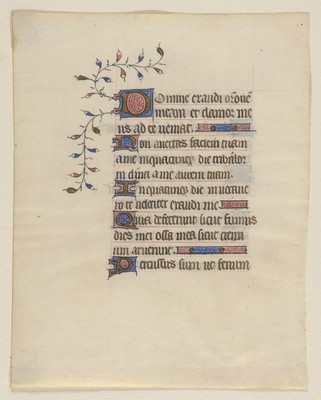 Domine exaudi oronē
meam et clamor me
us ad te veniat.
Non avertas faciem tuam
a me inquacunq; die tribulor
inclina a me aurem tuam.
Inquacunq; die invocave
ro te velociter exaudi me
Quia defecerunt sicut fumus
dies mei ossa mea sicut cremi
um aruerunt.
Percussus sum ut fenum